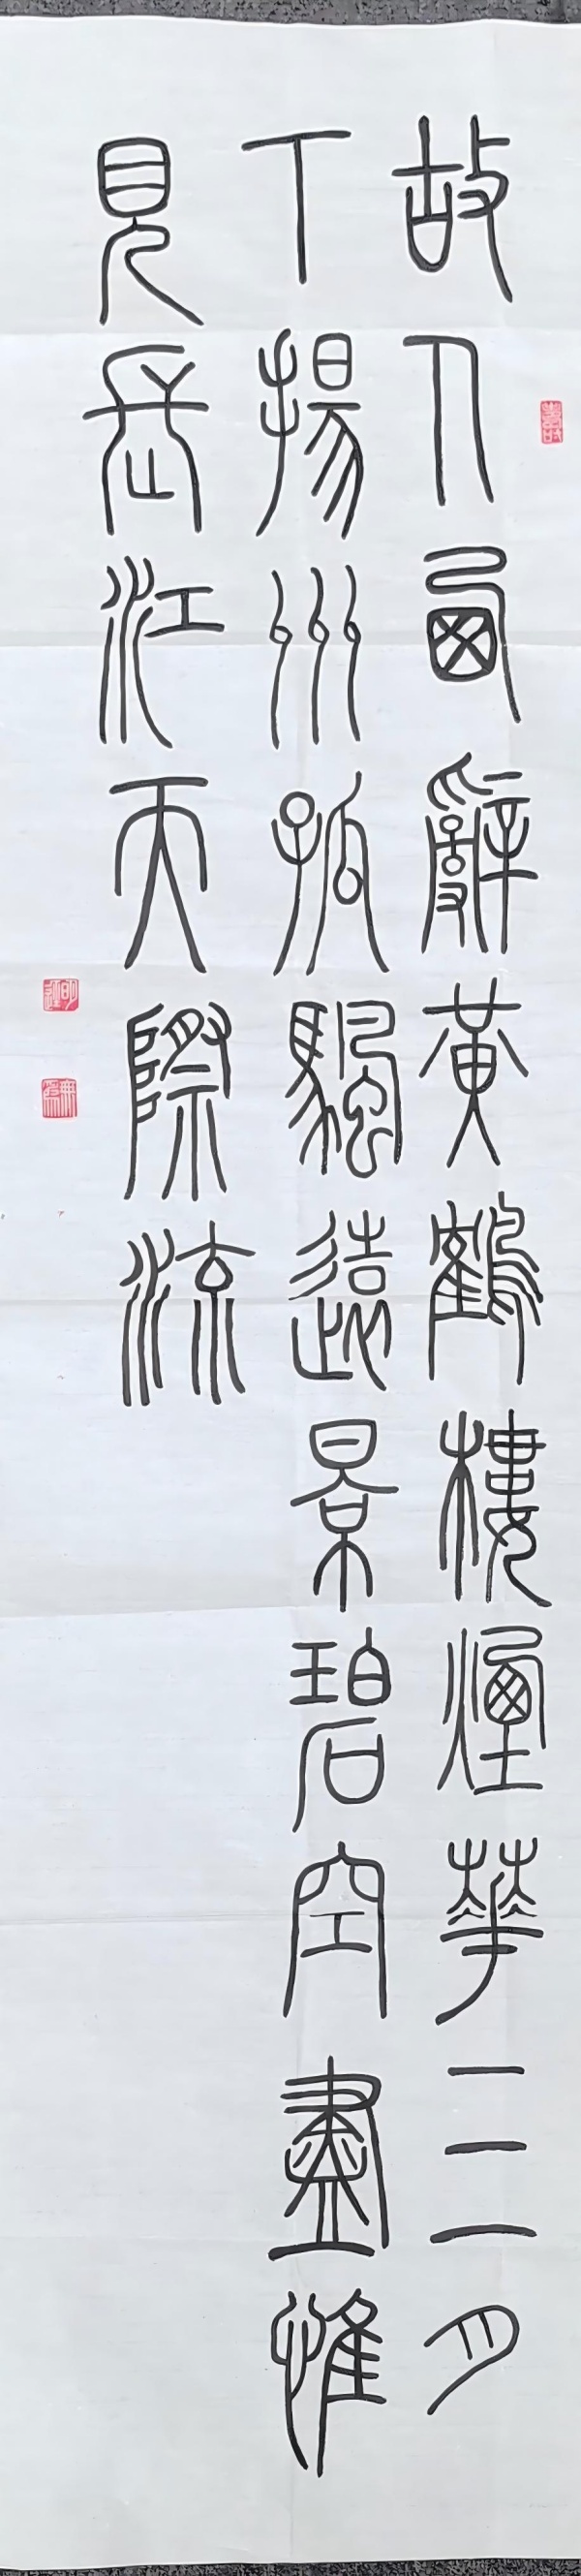 故人西辭黃鶴樓煙華三月
下揚州孤颿遠景碧空盡惟
見長江天際流